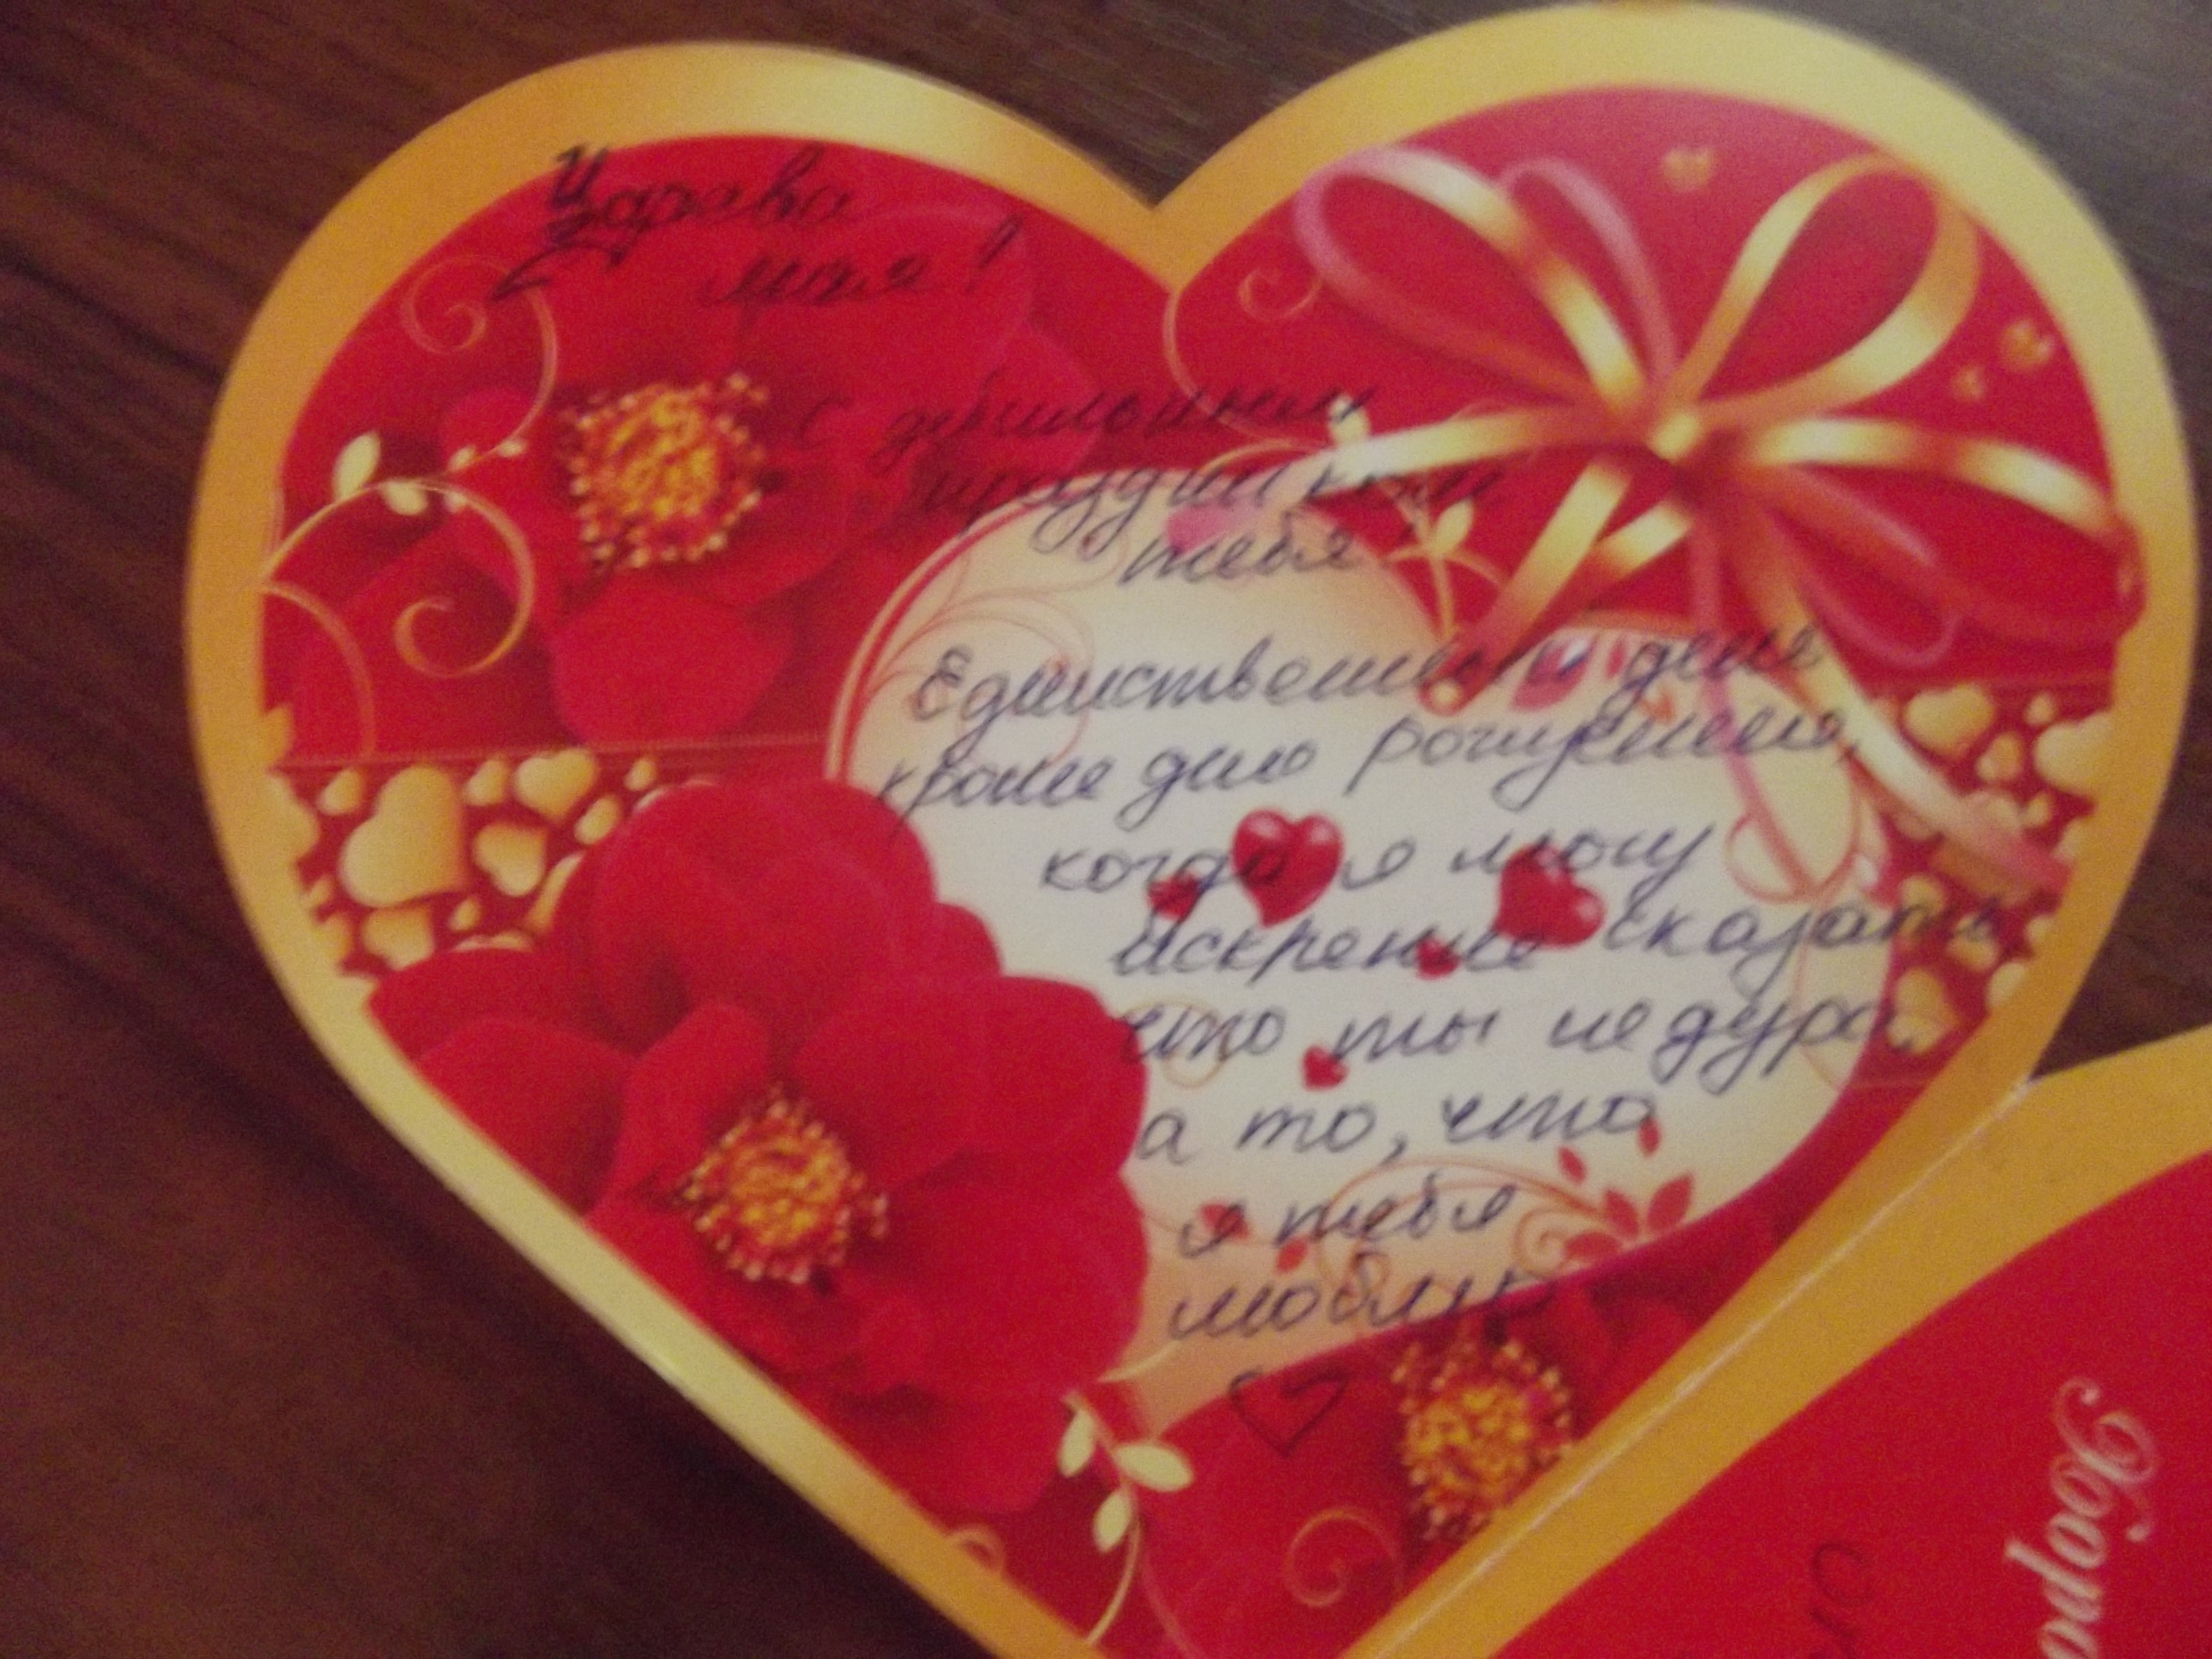 моя!
С дебильным
праздником
тебя
Единственный день
кроме дня рождения,
когда я могу
искренне сказать
что ты не дура,
а то, что
я тебя
люблю
Доро